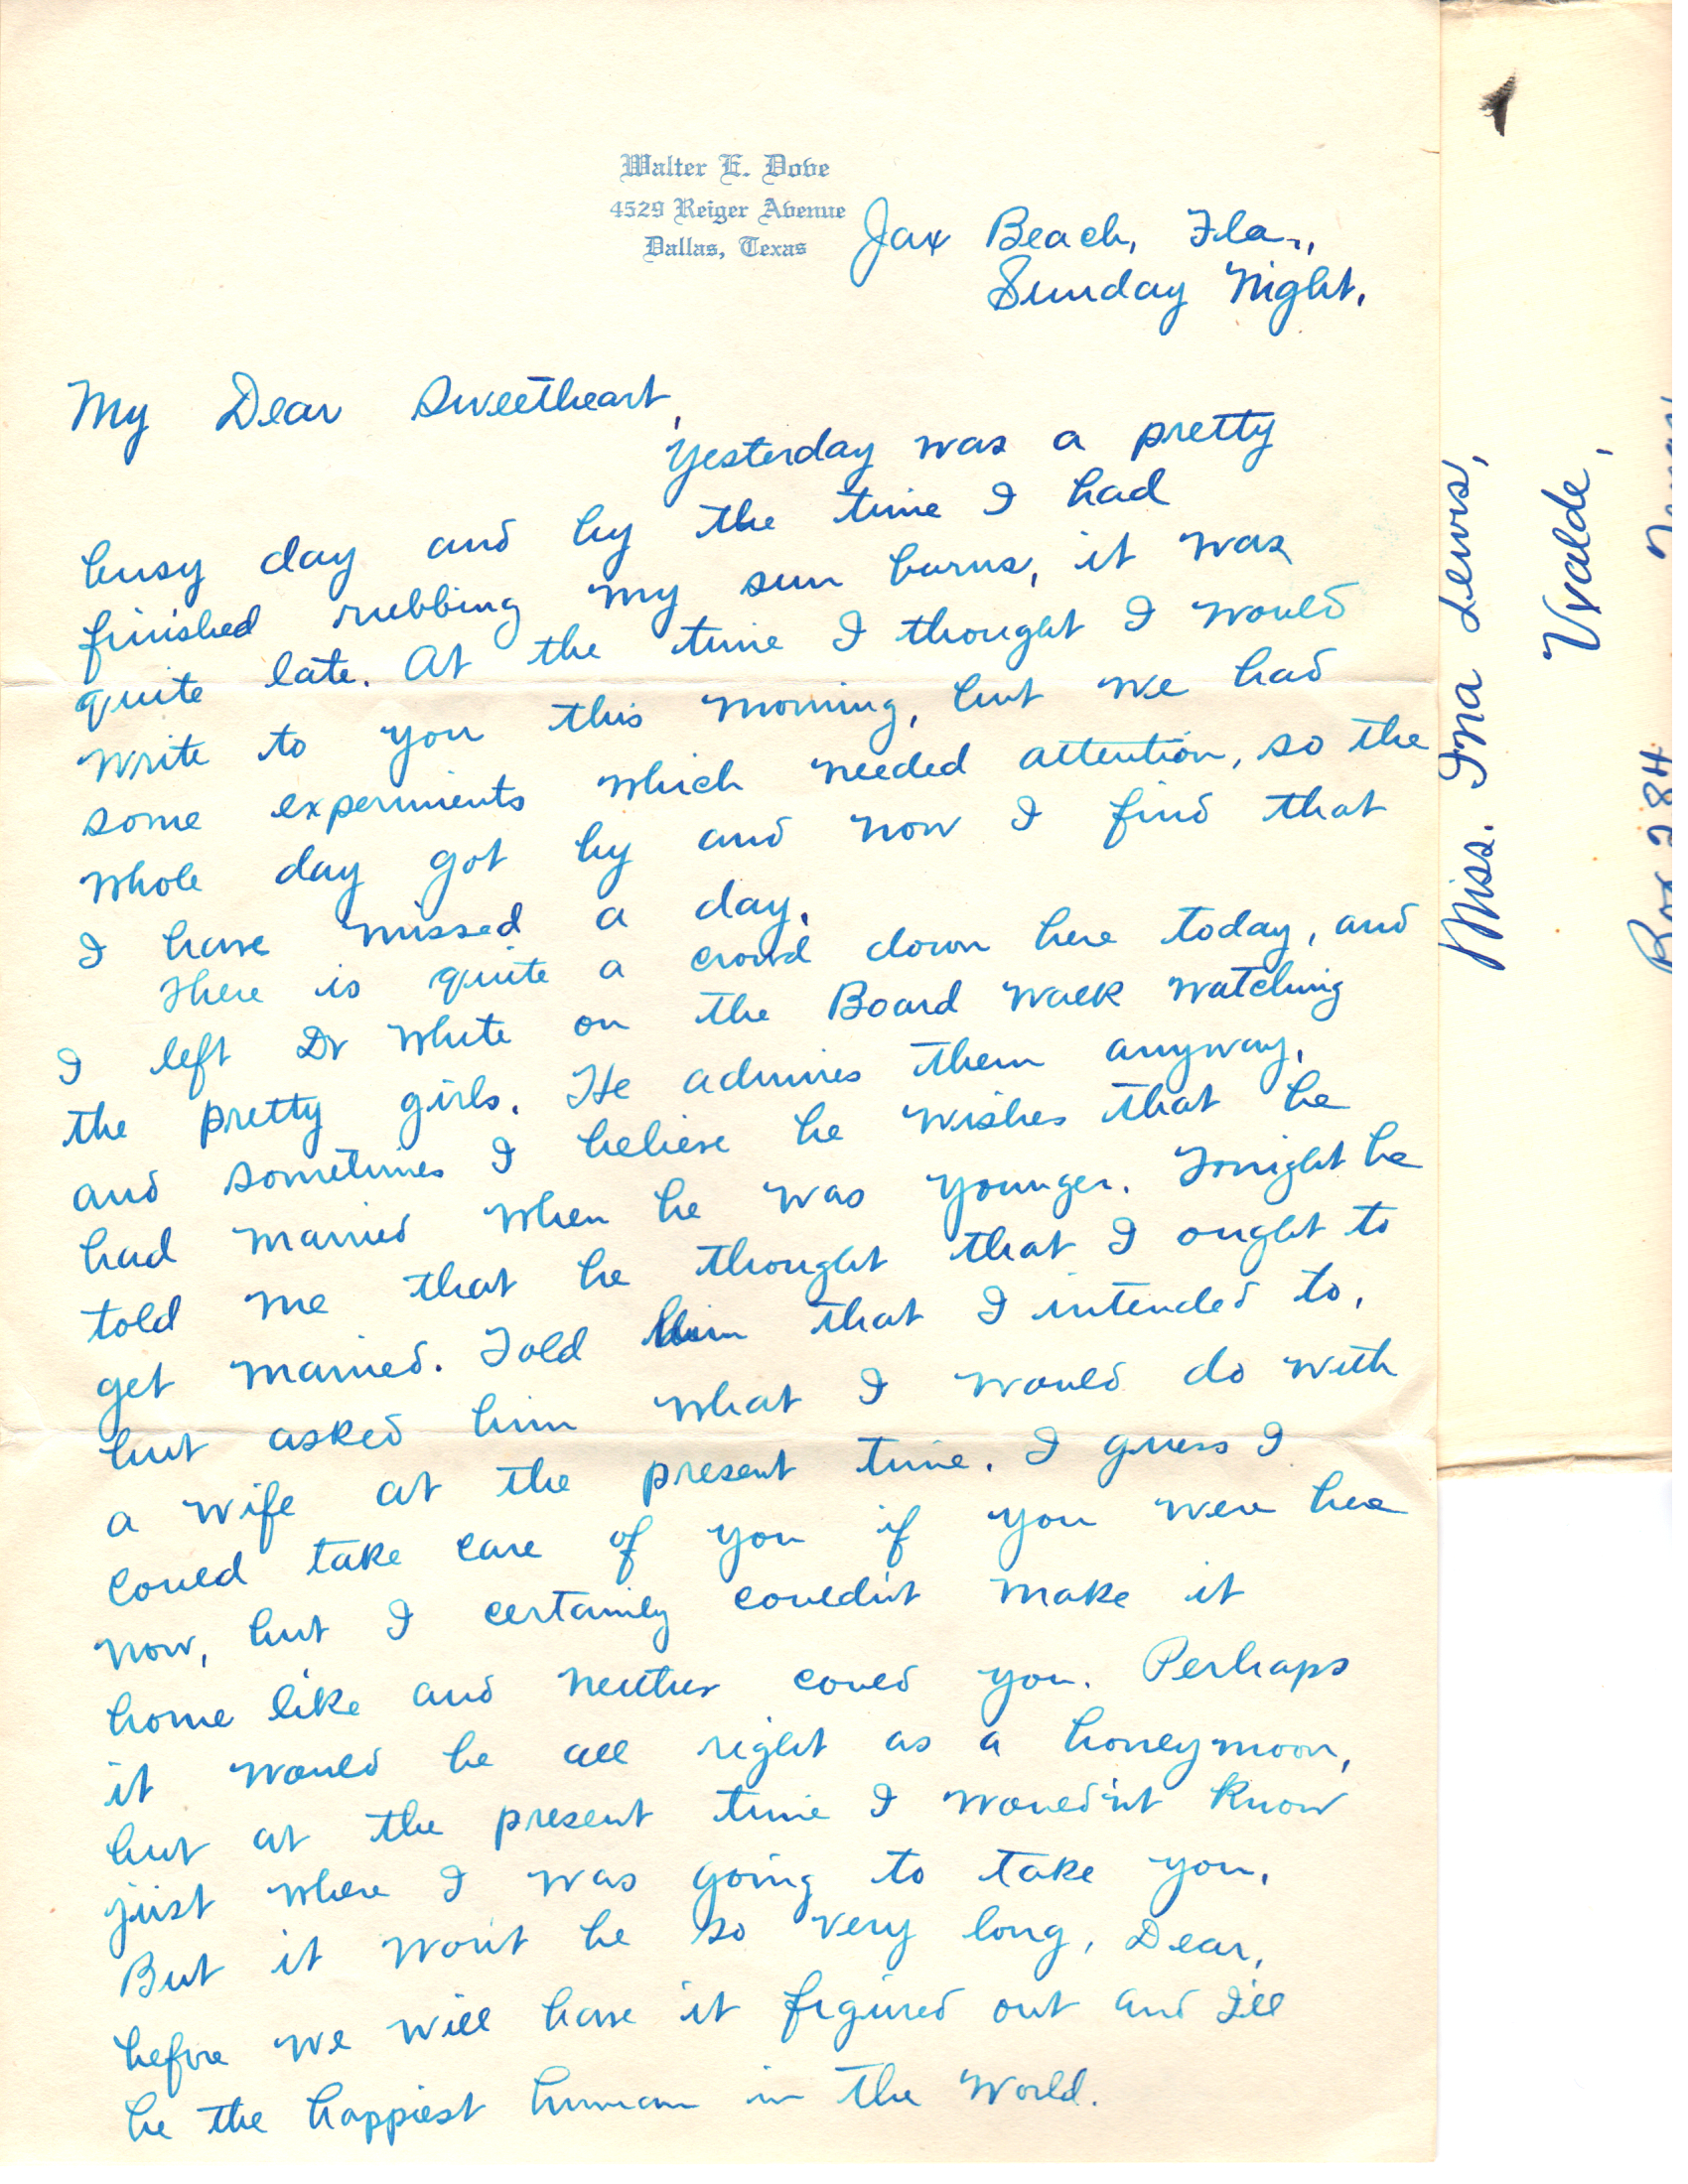 Walter E. Dove
4529 Reiger Avenue
Dallas, Texas
Jax Beach, Fla.,
Sunday Night.
My Dear Sweetheart,
Yesterday was a pretty
busy day and by the time I had
finished rubbing my sun burns, it was
quite late. At the time I thought I would
write to you this morning, but we had
some experiments which needed attention, so the
whole day got by and now I find that
I have missed a day.
There is quite a crowd down here today, and
I left Dr White on the Board walk watching
the pretty girls. He admires them anyway,
and sometimes I believe he wishes that he
had married when he was younger. Tonight he
told me that he thought that I ought to
get married. Told him that I intended to,
but asked him what I would do with
a wife at the present time. I guess I
could take care of you if you were here
now, but I certainly couldn't make it
home like and neither could you. Perhaps
it would be all right as a honeymoon,
but at the present time I would'nt know
just where I was going to take you.
But it won't be so very long, Dear,
before we will have it figured out and I'll
be the happiest human in the World.
Miss. Ina Lewis,
Uvalde,
Box 284